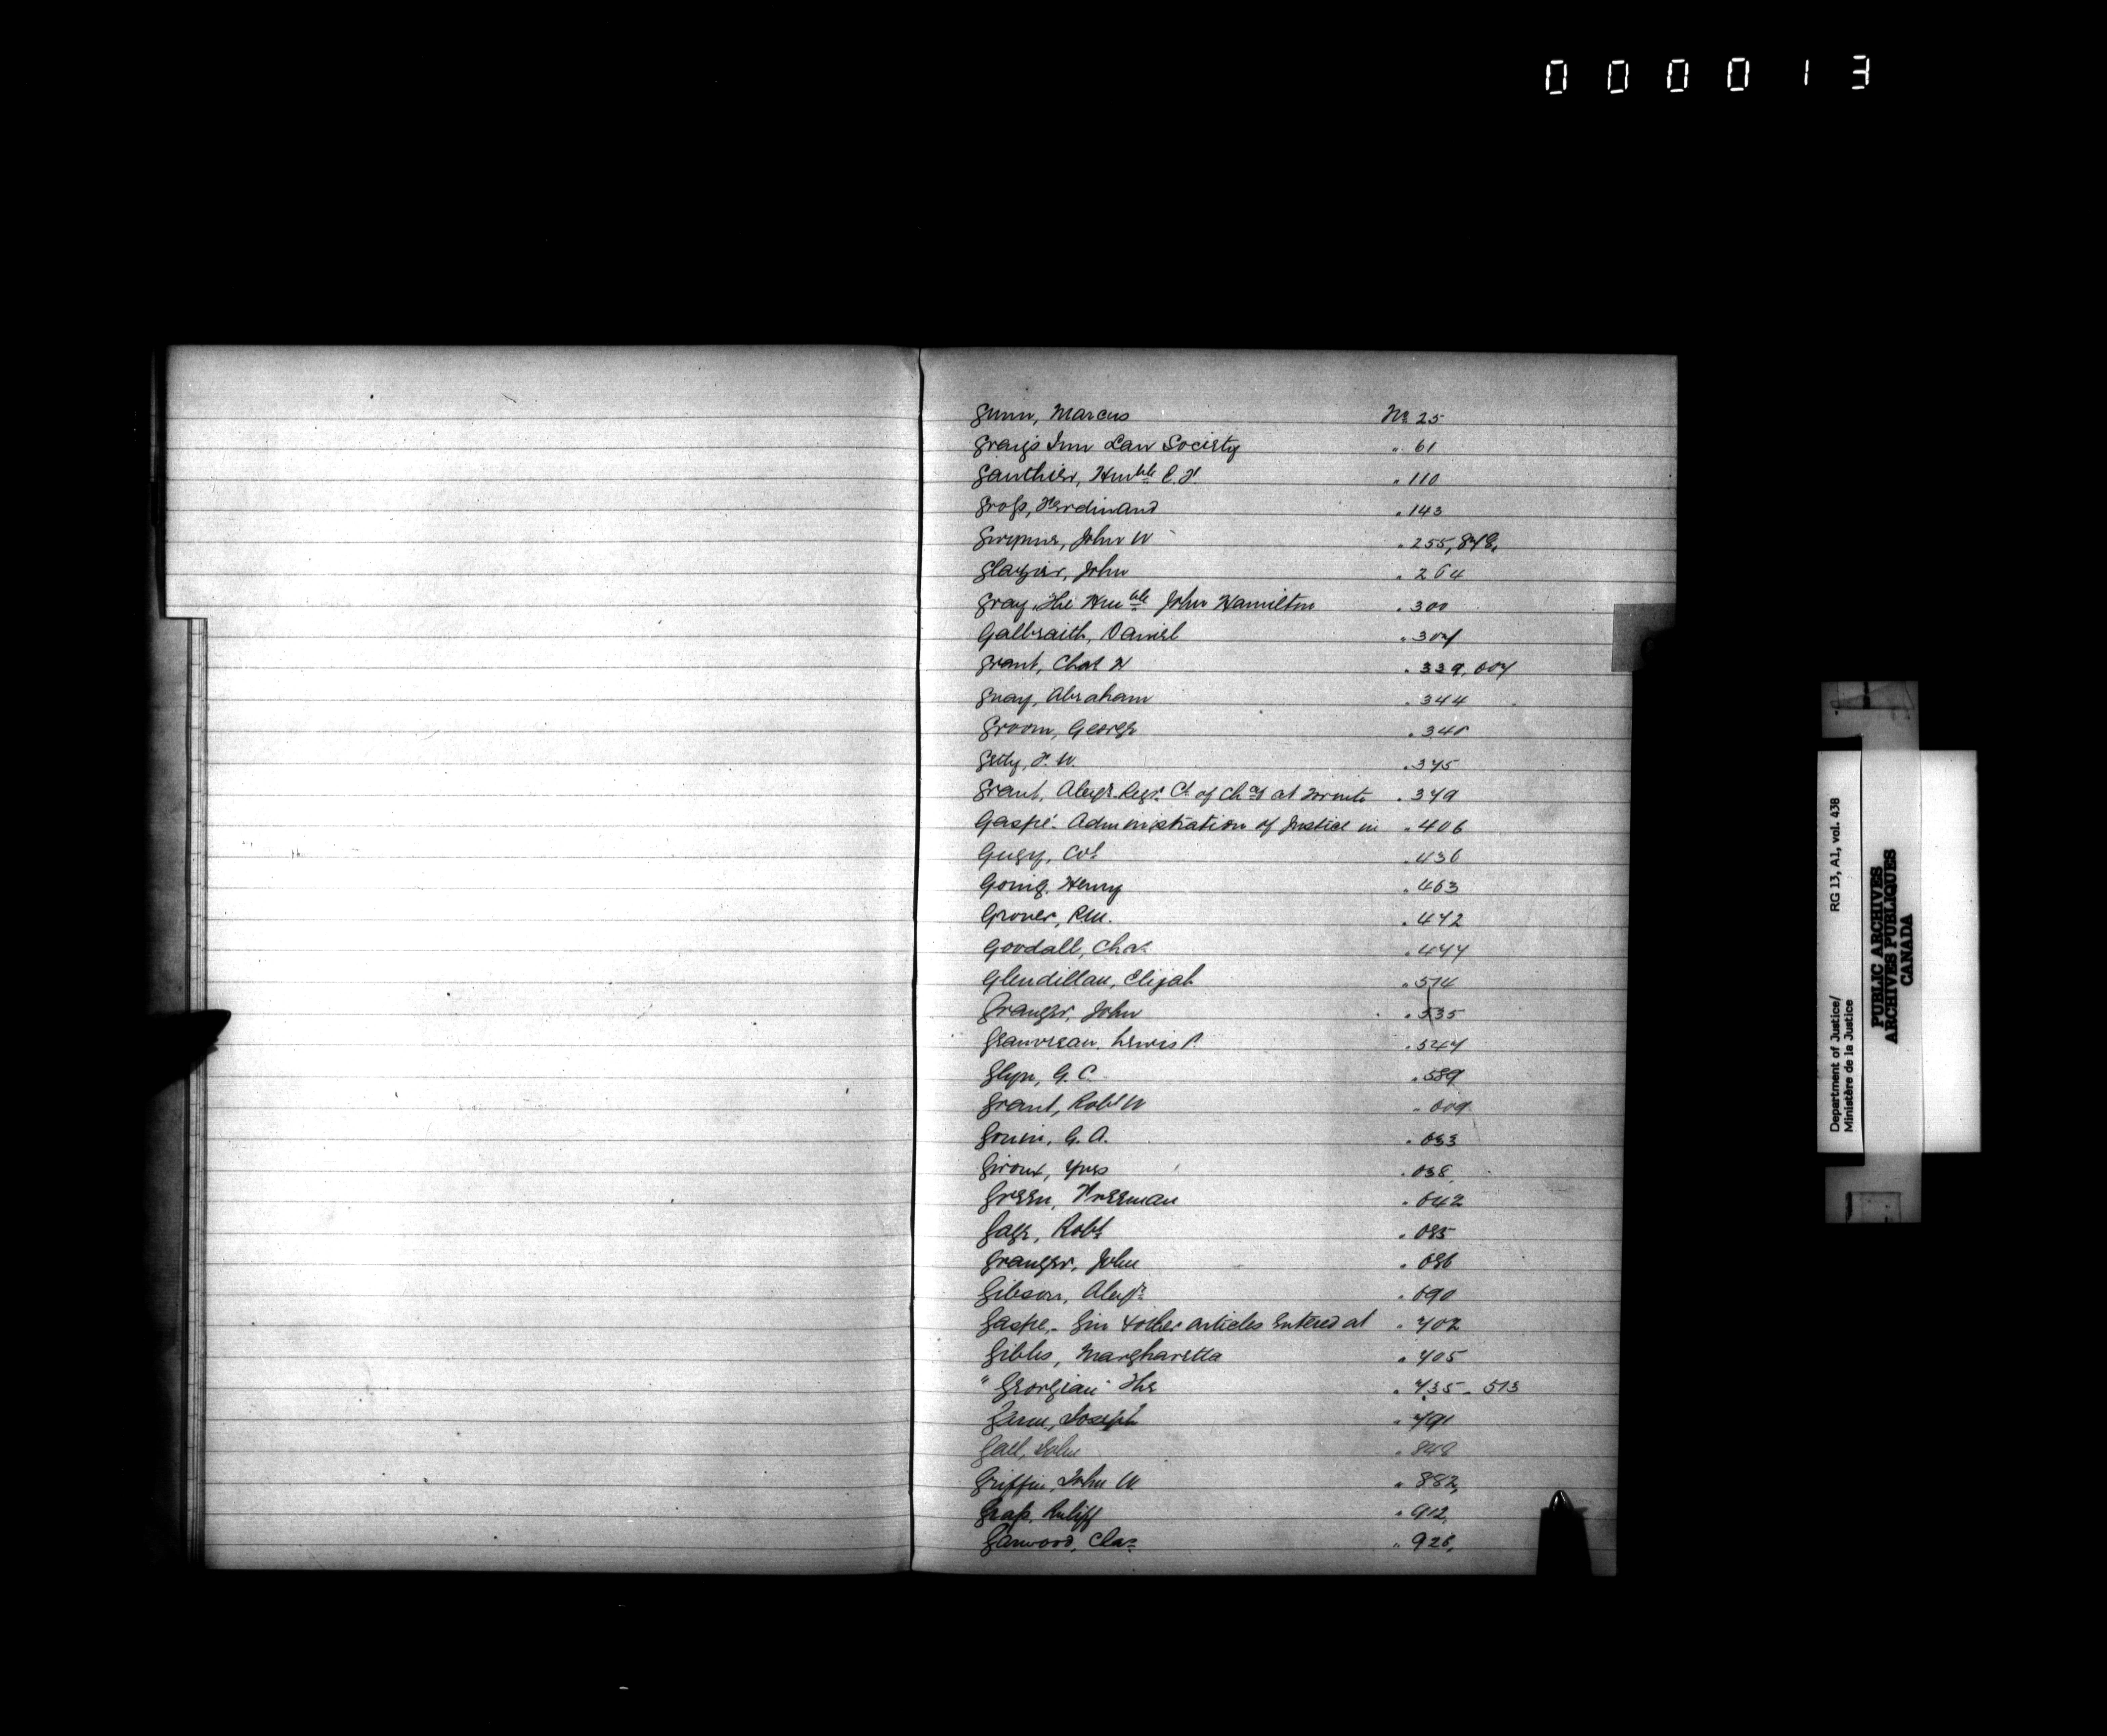 000013
Gunn, Marcus No 25
Gray's Inn Law Society " 61
Gauthier, Honble C. F. " 110
Gross, Ferdinand " 143
Gwynne, John W " 255, 848,
Glazier, John " 264
Gray, The Honble John Hamilton " 300
Galbraith, Daniel " 307
Grant, Chas H " 339, 607
Guay, Abraham " 344
Groom, George " 346
F. W. " 375
Grant, Alexr. Regr. Ct of Chcy at Toronto " 379
Gaspé. Administration of Justice in " 406
Gugy, Col " 436
Henry " 463
Grover, P.M. " 472
Goodall, Chas. " 477
Glendillan, Elijah " 514
Granger, John " 535
Lewis P. " 547
Glyn, G. C. " 589
Grant, Robt W " 609
Gouin, G. A. " 633
Giroux, Yves " 638
Green, Freeman " 642
Gage, Robt " 685
Granger, John " 686
Gibson, Alexr " 690
Gaspe,- Gin & other articles entered at " 702
Gibbs, Margharetta " 705
" Georgian" The " 735 - 513
Joseph " 791
Gall, John " 848
Griffin, John W. " 882,
" 912,
Garwood, Chas " 926,
Department of Justice/ RG 13, A1, vol. 438
Ministère de la Justice
PUBLIC ARCHIVES
ARCHIVES PUBLIQUES
CANADA